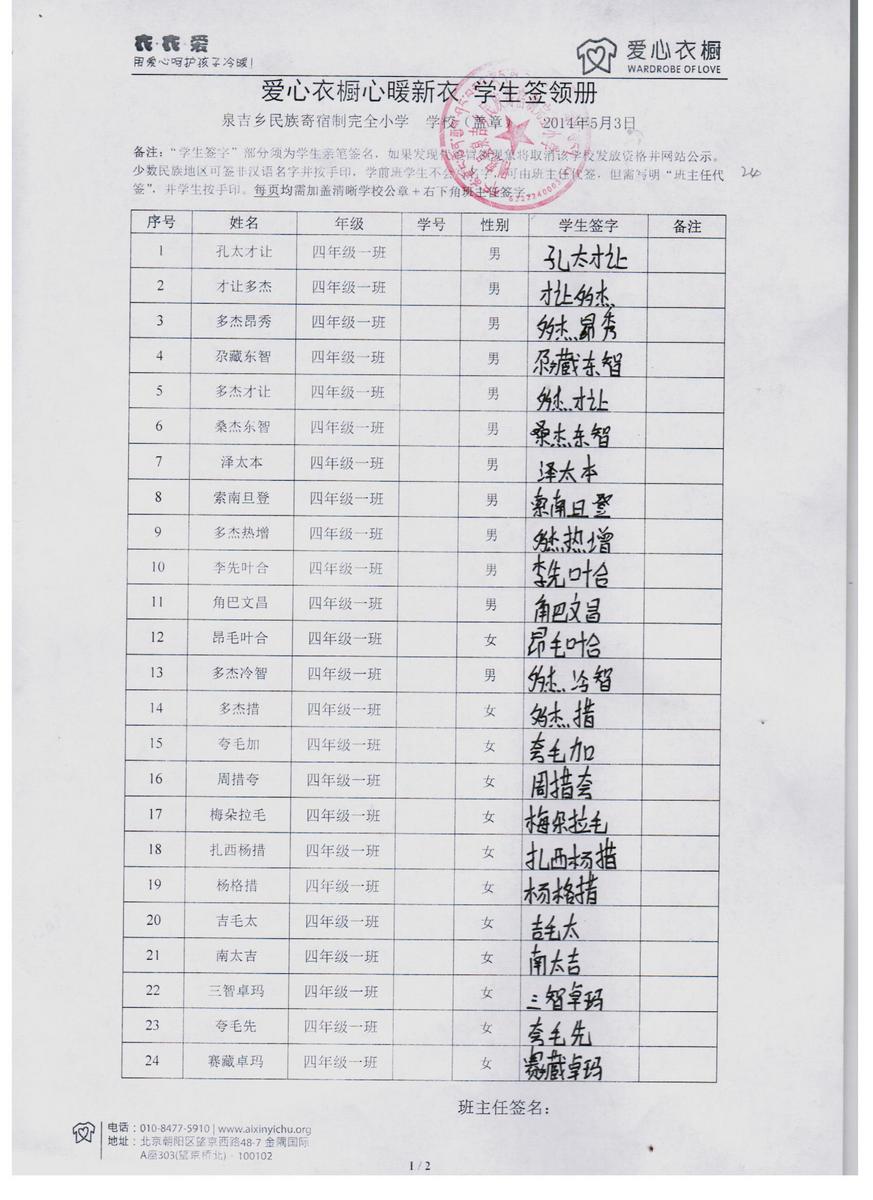 衣·衣·爱
用爱心呵护孩子冷暖！
爱心衣橱
WARDROBE OF LOVE
爱心衣橱心暖新衣 学生签领册
泉吉乡民族寄宿制完全小学 学校（盖章） 2014年5月3日
备注：“学生签字”部分须为学生亲笔签名，如果发现代签冒签现象将取消该学校发放资格并网站公示。
少数民族地区可签非汉语名字并按手印，学前班学生不会签字，可由班主任代签，但需写明“班主任代 24
签”，并学生按手印。每页均需加盖清晰学校公章+右下角班主任签字。
序号 姓名 年级 学号 性别 学生签字 备注
1 孔太才让 四年级一班 男 孔太才让
2 才让多杰 四年级一班 男 才让多杰
3 多杰昂秀 四年级一班 男 多杰昂秀
4 尕藏东智 四年级一班 男 尕藏东智
5 多杰才让 四年级一班 男 多杰才让
6 桑杰东智 四年级一班 男 桑杰东智
7 泽太本 四年级一班 男 泽太本
8 索南旦登 四年级一班 男 索南旦登
9 多杰热增 四年级一班 男 多杰热增
10 李先叶合 四年级一班 男 李先叶合
11 角巴文昌 四年级一班 男 角巴文昌
12 昂毛叶合 四年级一班 女 昂毛叶合
13 多杰冷智 四年级一班 男 多杰冷智
14 多杰措 四年级一班 女 多杰措
15 夸毛加 四年级一班 女 夸毛加
16 周措夸 四年级一班 女 周措夸
17 梅朵拉毛 四年级一班 女 梅朵拉毛
18 扎西杨措 四年级一班 女 扎西杨措
19 杨格措 四年级一班 女 杨格措
20 吉毛太 四年级一班 女 吉毛太
21 南太吉 四年级一班 女 南太吉
22 三智卓玛 四年级一班 女 三智卓玛
23 夸毛先 四年级一班 女 夸毛先
24 赛藏卓玛 四年级一班 女 赛藏卓玛
班主任签名：
电话：010-8477-5910 | www.aixinyichu.org
地址：北京朝阳区望京西路48-7 金隅国际
A座303(望京桥北) · 100102
1 / 2